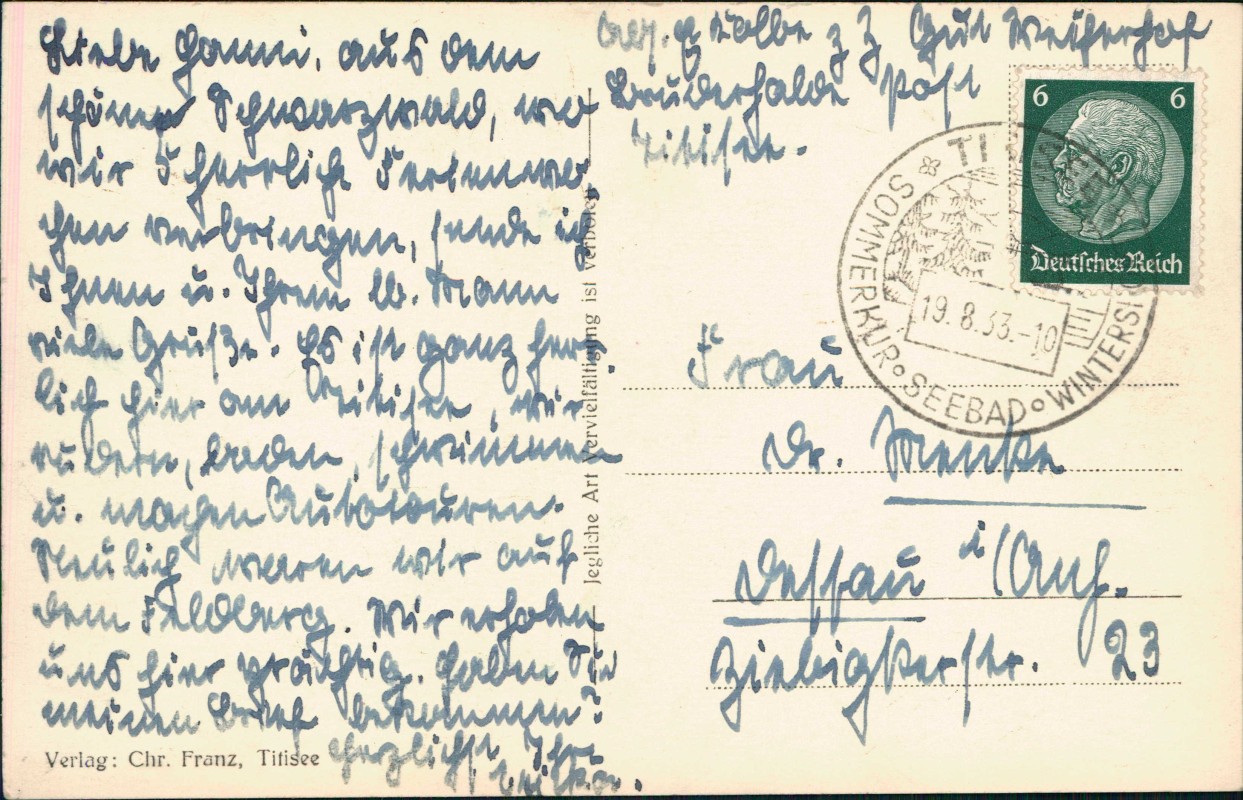 Liebe Hanni, aus dem
schönen Schwarzwald, wo
wir 5 herrliche Ferienwo
chen verbringen, sende ich
Ihnen u. Ihrem lb. Mann
viele Grüße. Es ist ganz herr-
lich hier am Titisee, wir
rudern, baden, schwimmen
u. machen Autotouren.
Neulich waren wir auf
dem Feldberg. Wir erholen
uns hier prächtig. Haben Sie
meinen Brief bekommen?
Herzlichst Ihre
Verlag: Chr. Franz, Titisee
Jegliche Art Vervielfältigung ist verboten
Abs. Kolbe z Z Gut Weiherhof
Bruderhalde Post
Titisee.
6 6
Deutsches Reich
TITISEE
SOMMERKUR SEEBAD WINTERSPORT
19.8.33.-10
Frau
Dr. Menke
Dessau i/Anh.
Ziebigkerstr. 23